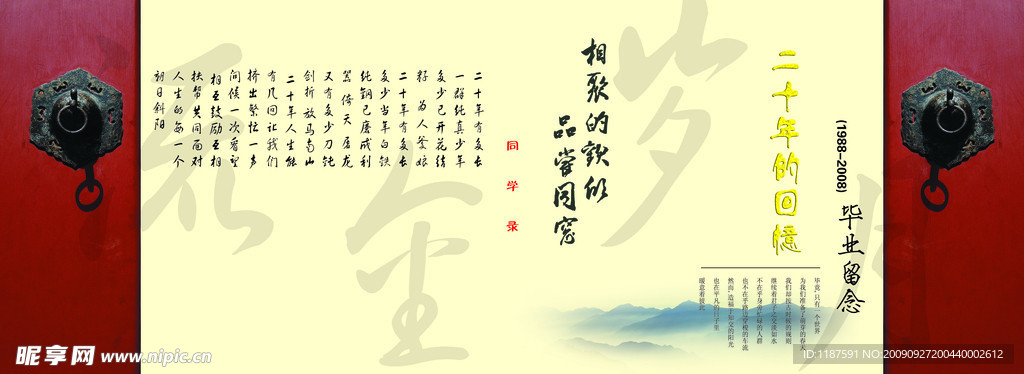 (1988-2008) 毕业留念
二十年的回憶
毕竟 只有一个世界
为我们准备了萌芽的春天
我们却按古时候的规则
继续着君子之交淡如水
不在乎身旁忙碌的人群
也不在乎路边穿梭的车流
然而 造福于如父的阳光
也在平凡的日子里
暖意着彼此
岁月
金
相聚的铁似
品尝同窗
同学录
二十年有多长
一群纯真少年
多少已开花结
籽 为人爹娘
二十年有多长
多少当年白铁
纯钢已磨成利
器 倚天屠龙
又有多少刀钝
剑折放马南山
二十年人生能
有几回让我们
挤出繁忙一声
问候一次看望
相互鼓励互相
扶帮共同面对
人生的每一个
初日斜阳
昵享网 www.nipic.cn
ID:1187591 NO:20090927200440002612